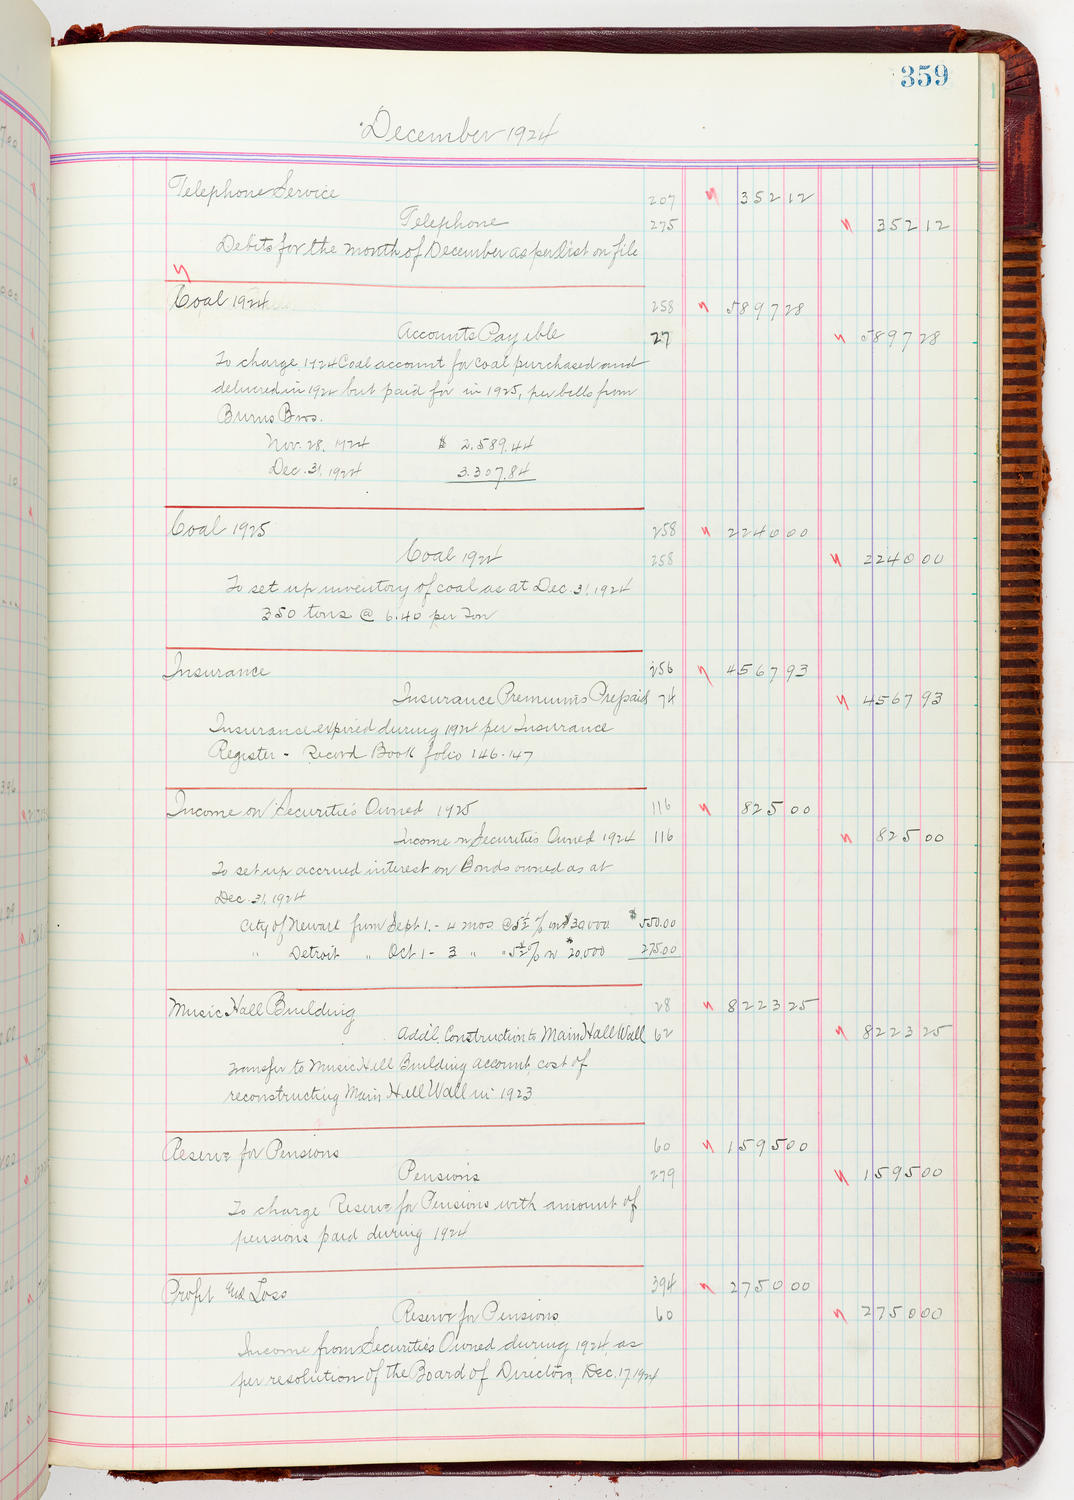 359
December 1924
Telephone Service 207 35212
Telephone 275 35212
Debits for the month of December as per list on file
Coal 1924 258 589728
Accounts Payable 27 589728
To charge 1924 Coal account for coal purchased and
delivered in 1924 but paid for in 1925, per bills from
Burns Bros.
Nov. 28, 1924 $ 2,589.44
Dec. 31, 1924 3.307.84
Coal 1925 258 224000
Coal 1924 258 224000
To set up inventory of coal as at Dec. 31, 1924
350 tons @ 6.40 per Ton
Insurance 256 456793
Insurance Premiums Prepaid 74 456793
Insurance expired during 1924 per Insurance
Register - Record Book folio 146-147
Income on Securities Owned 1925 116 82500
Income on Securities Owned 1924 116 82500
To set up accrued interest on Bonds owned as at
Dec. 31, 1924
City of Newark from Sept 1. - 4 mos @ 5½ % on $30,000 $550.00
" Detroit " Oct 1 - 3 " " 5½ % on $20,000 275.00
Music Hall Building 28 822325
Add'l Construction to Main Hall Wall 62 822325
Transfer to Music Hall Building account, cost of
reconstructing Main Hall Wall in 1923
Reserve for Pensions 60 159500
Pensions 279 159500
To charge Reserve for Pensions with amount of
pensions paid during 1924
Profit and Loss 394 275000
Reserve for Pensions 60 275000
Income from Securities Owned during 1924, as
per resolution of the Board of Directors, Dec. 17, 1924